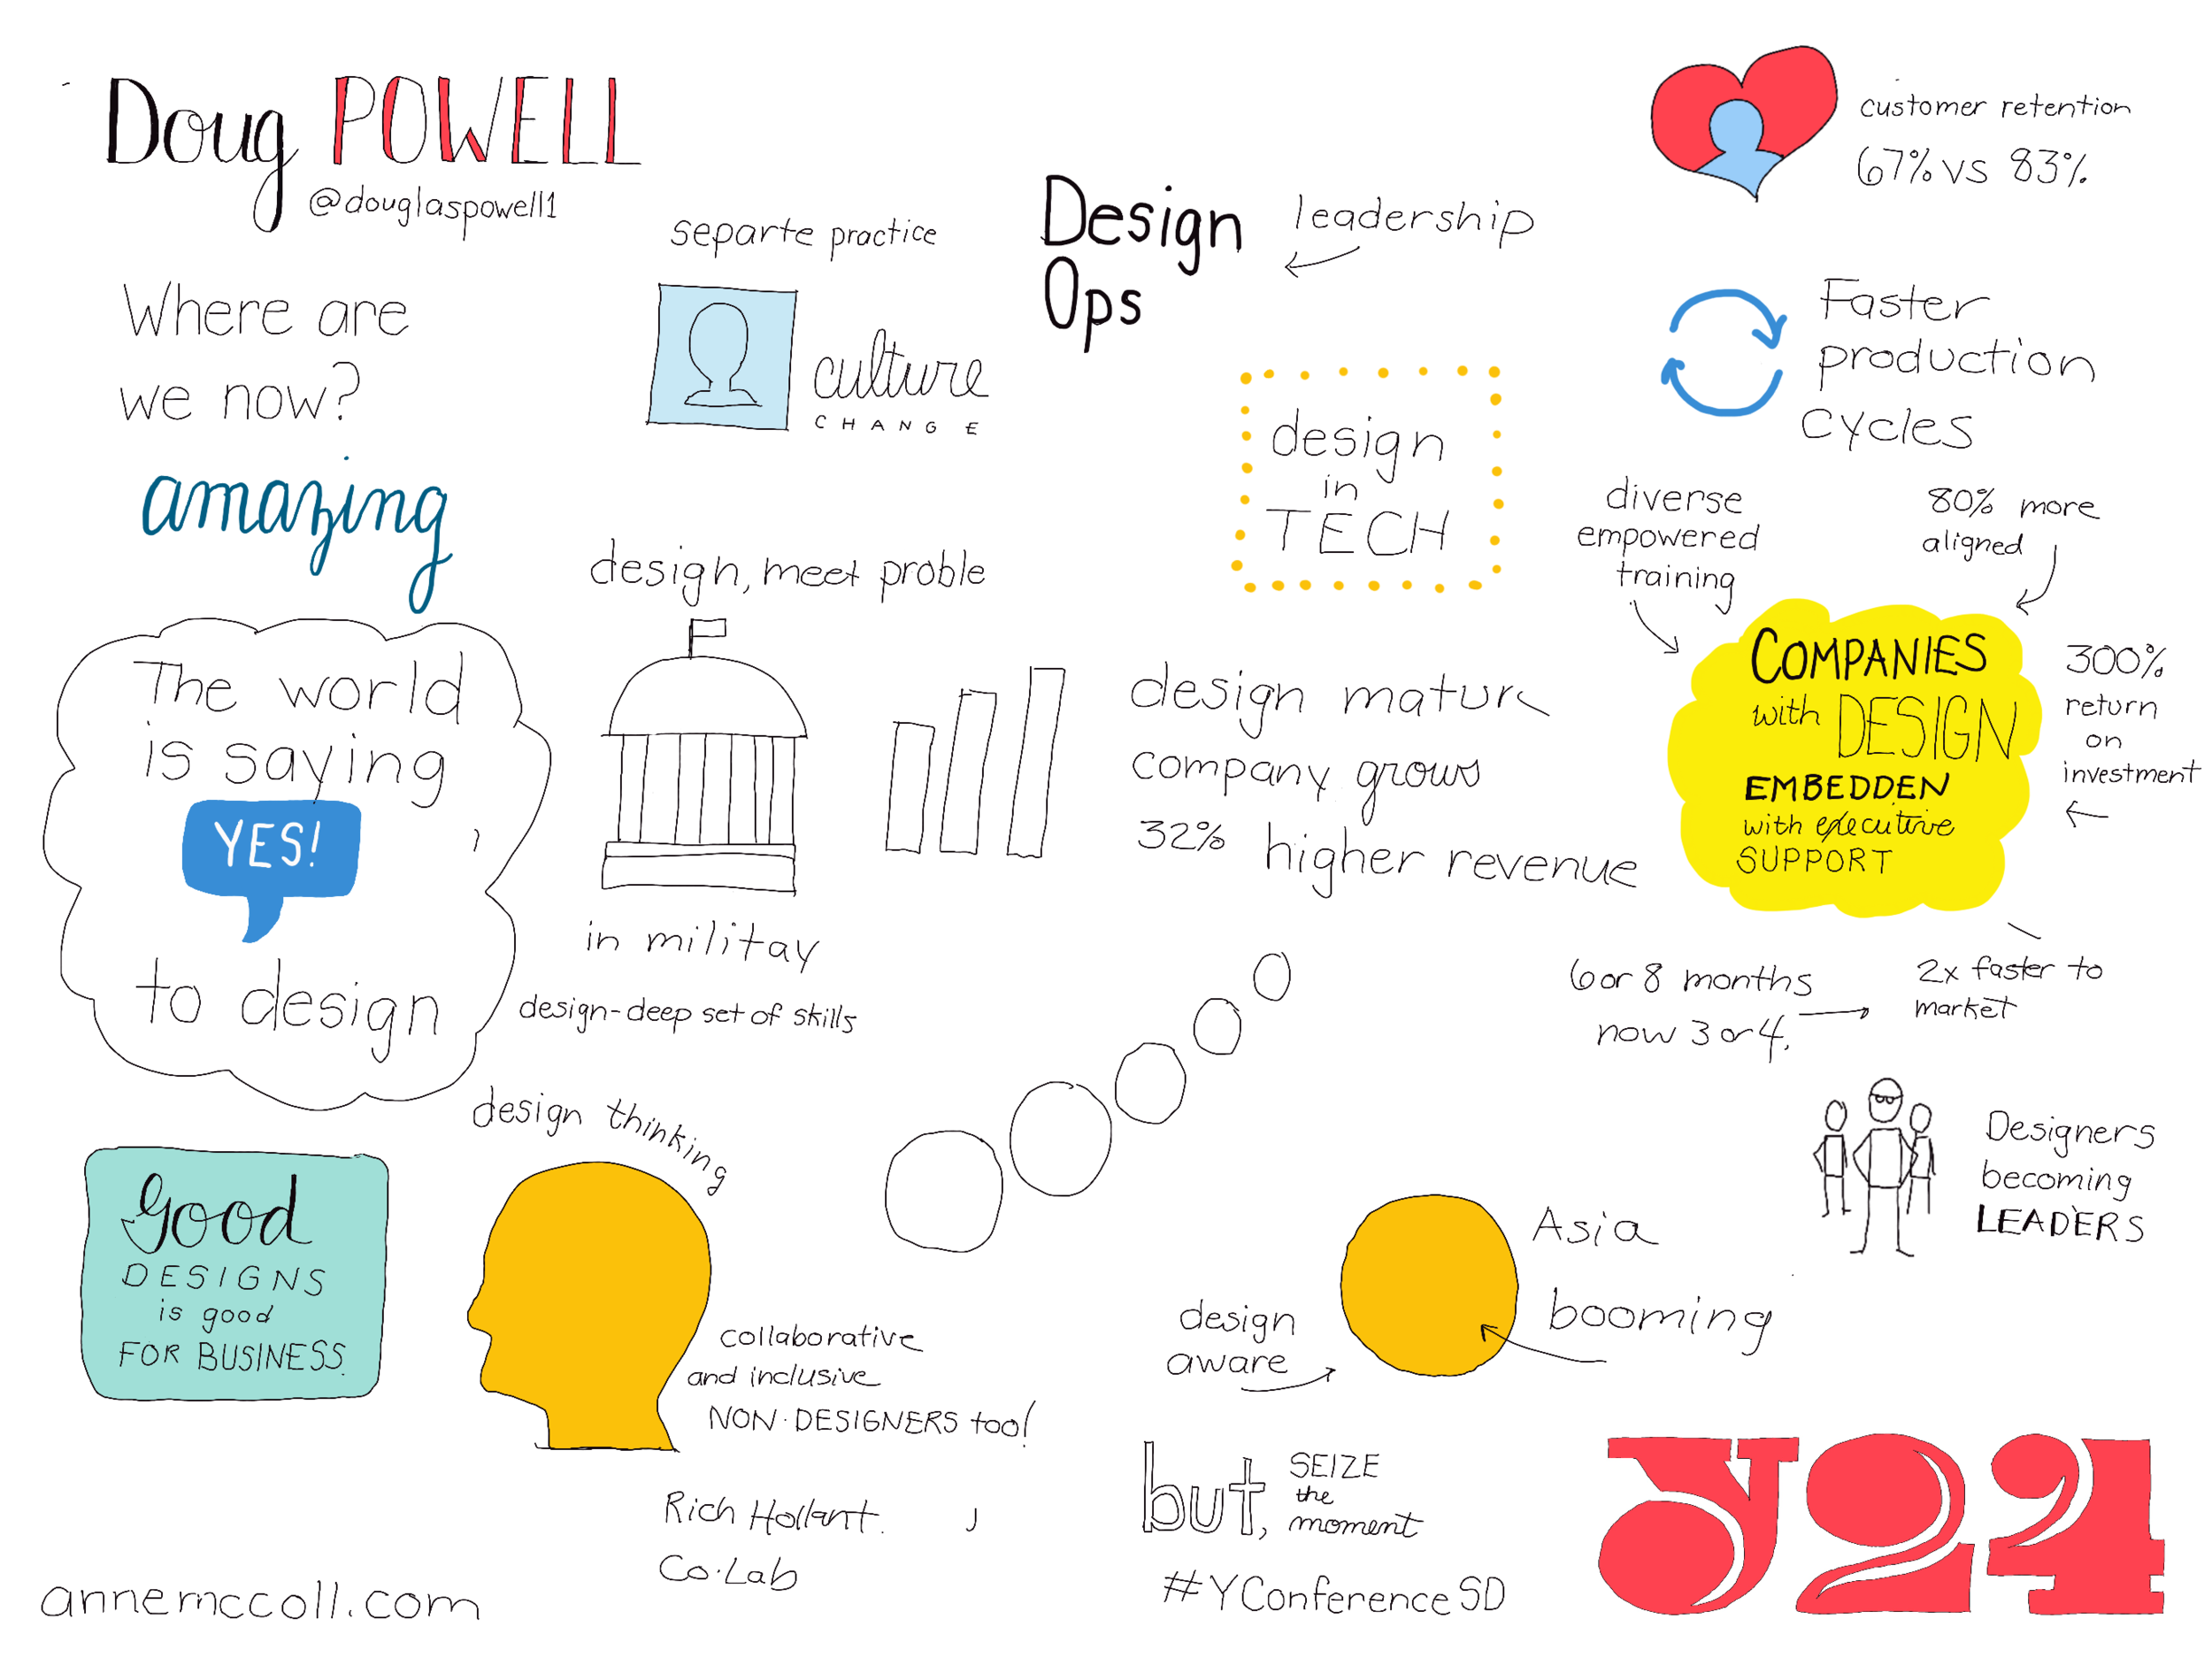 Doug POWELL
@douglaspowell1
Where are
we now?
amazing
The world
is saying
YES!
to design
Good
DESIGNS
is good
FOR BUSINESS
annemccoll.com
separte practice
culture
CHANGE
design, meet proble
in militay
design-deep set of skills
design thinking
collaborative
and inclusive
NON-DESIGNERS too!
Rich Hollant.
Co.Lab
Design
Ops
leadership
design
in
TECH
design matur
company grows
32% higher revenue
customer retention
67% vs 83%
Faster
production
cycles
diverse
empowered
training
80% more
aligned
COMPANIES
with DESIGN
EMBEDDEN
with executive
SUPPORT
300%
return
on
investment
6 or 8 months
now 3 or 4.
2x faster to
market
Designers
becoming
LEADERS
Asia
booming
design
aware
but,
SEIZE
the
moment
#YConferenceSD
Y24